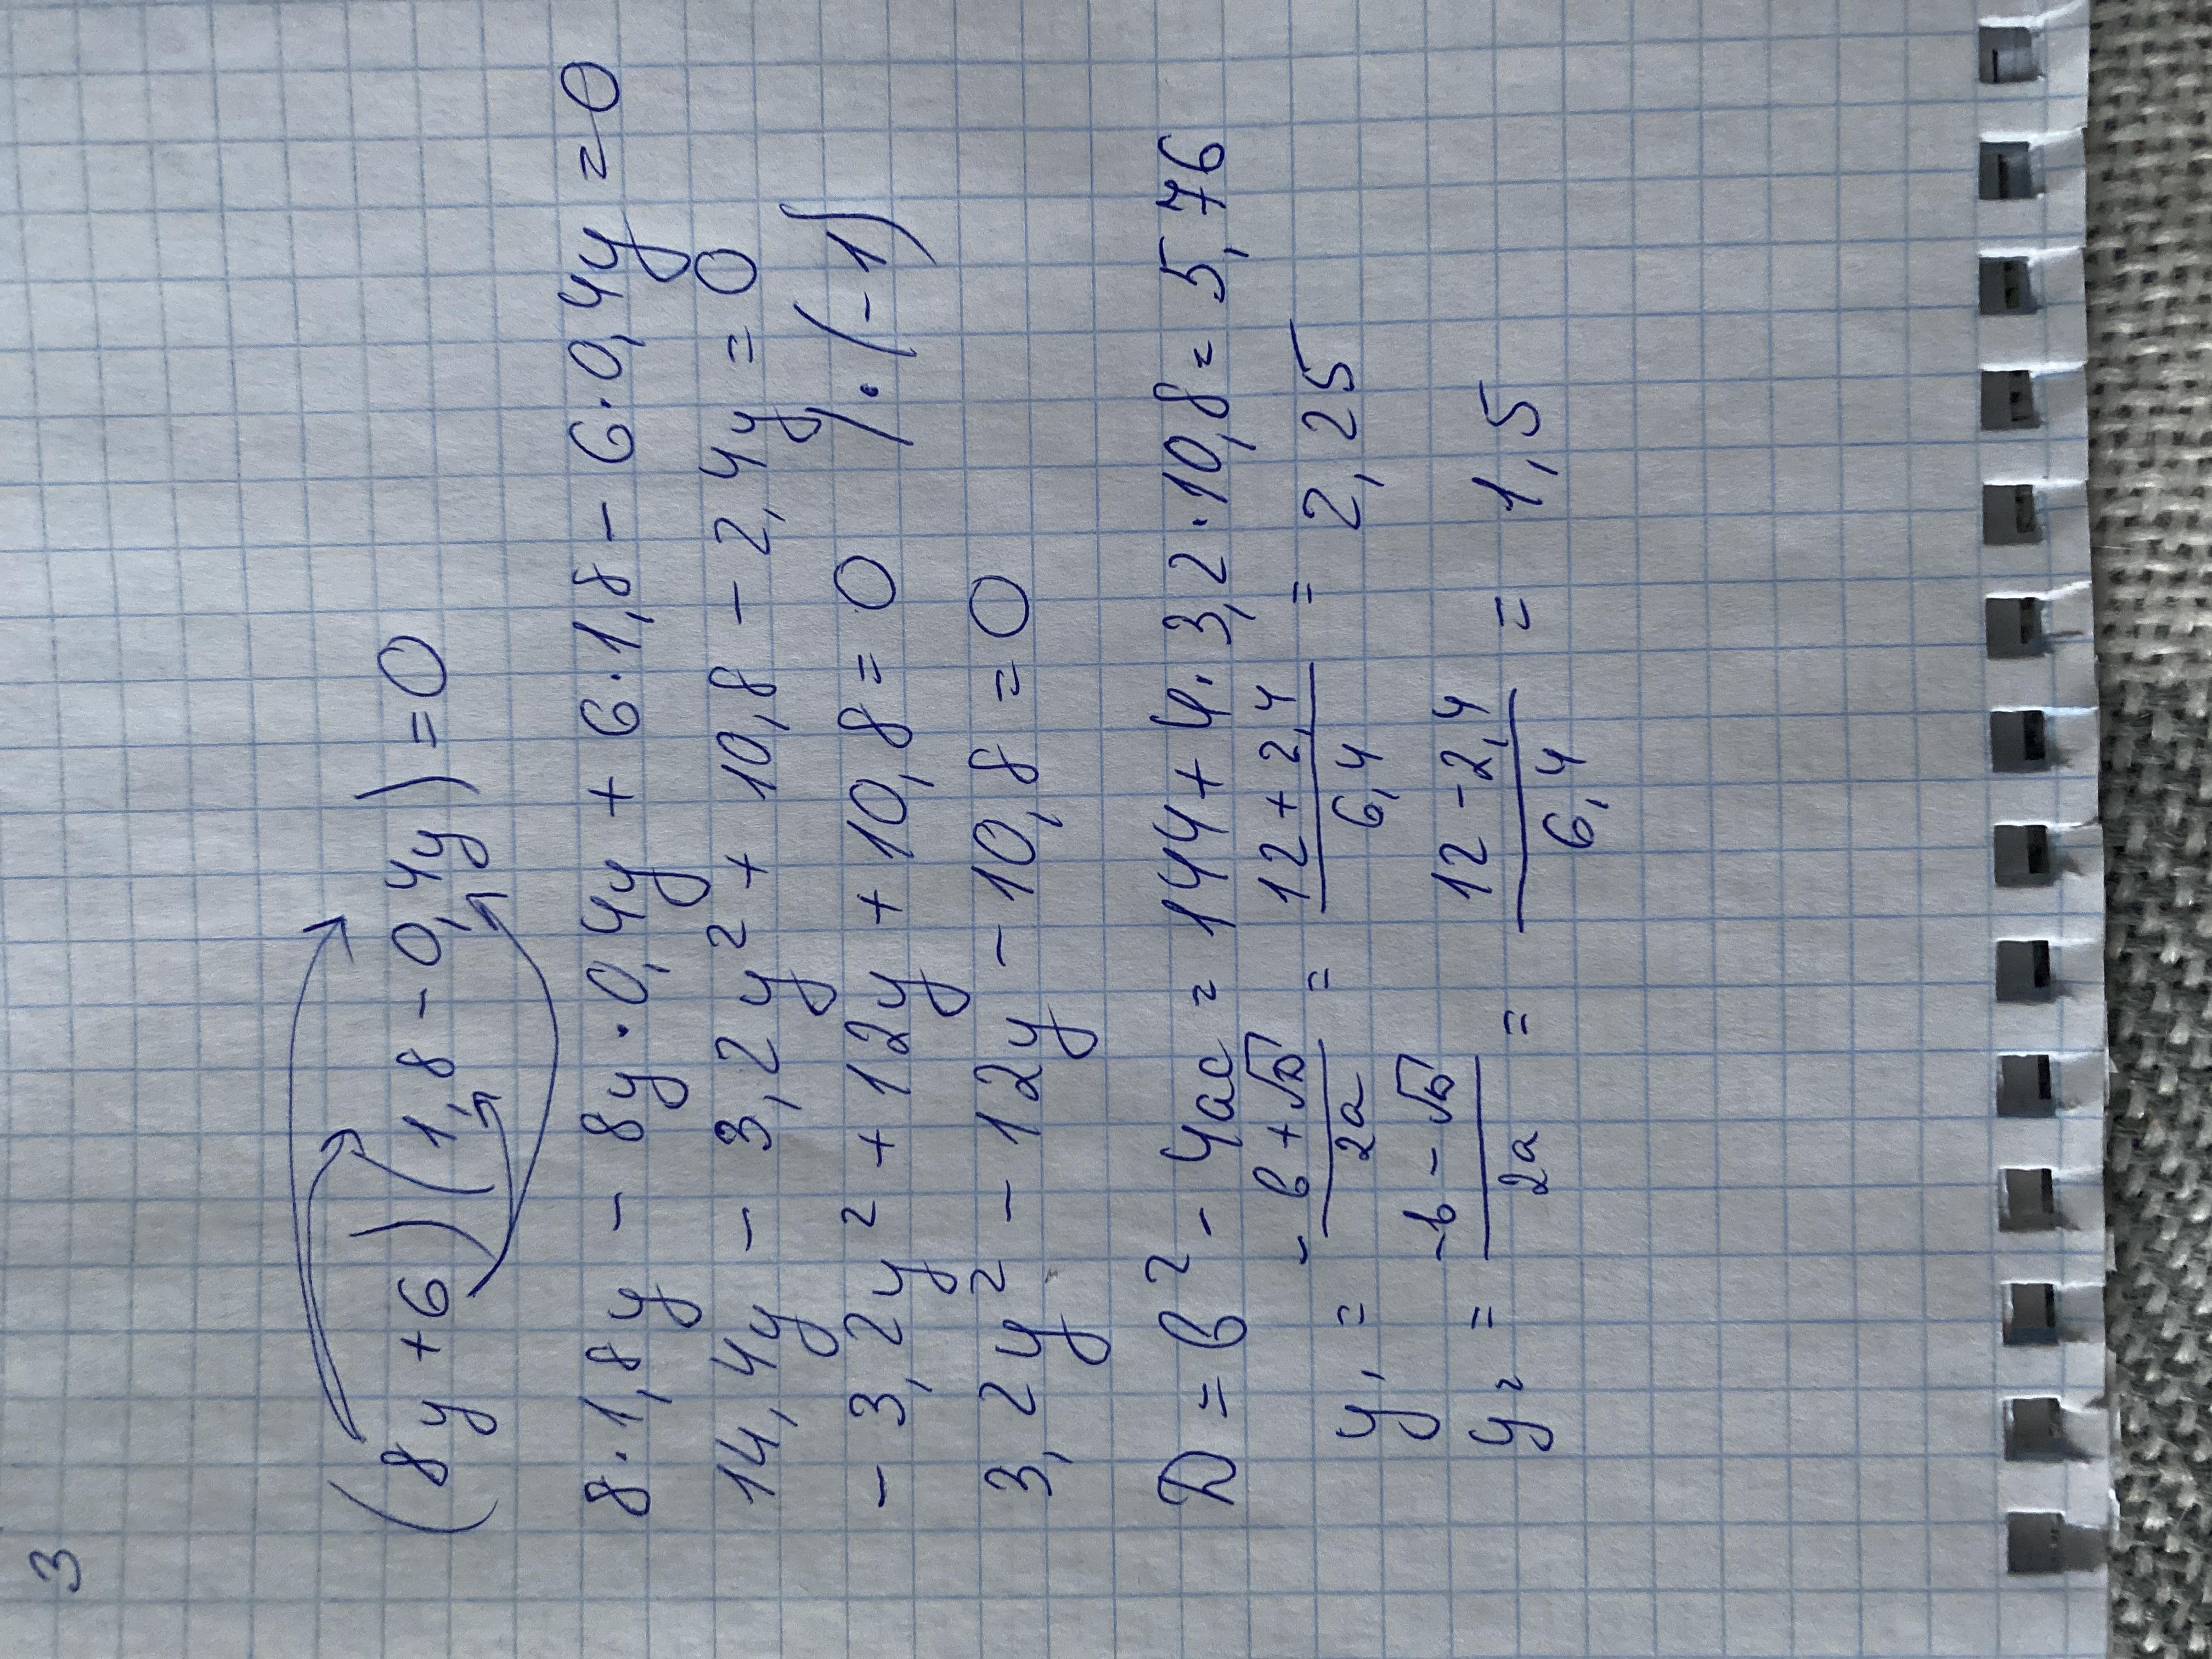 3
(8y+6)(1,8-0,4y)=0
8·1,8y - 8y·0,4y + 6·1,8 - 6·0,4y = 0
14,4y - 3,2y² + 10,8 - 2,4y = 0
-3,2y² + 12y + 10,8 = 0 /·(-1)
3,2y² - 12y - 10,8 = 0
D = b² - 4ac = 144 + 4·3,2·10,8 = 5,76
y₁ = (-b+√D)/2a = (12+2,4)/6,4 = 2,25
y₂ = (-b-√D)/2a = (12-2,4)/6,4 = 1,5